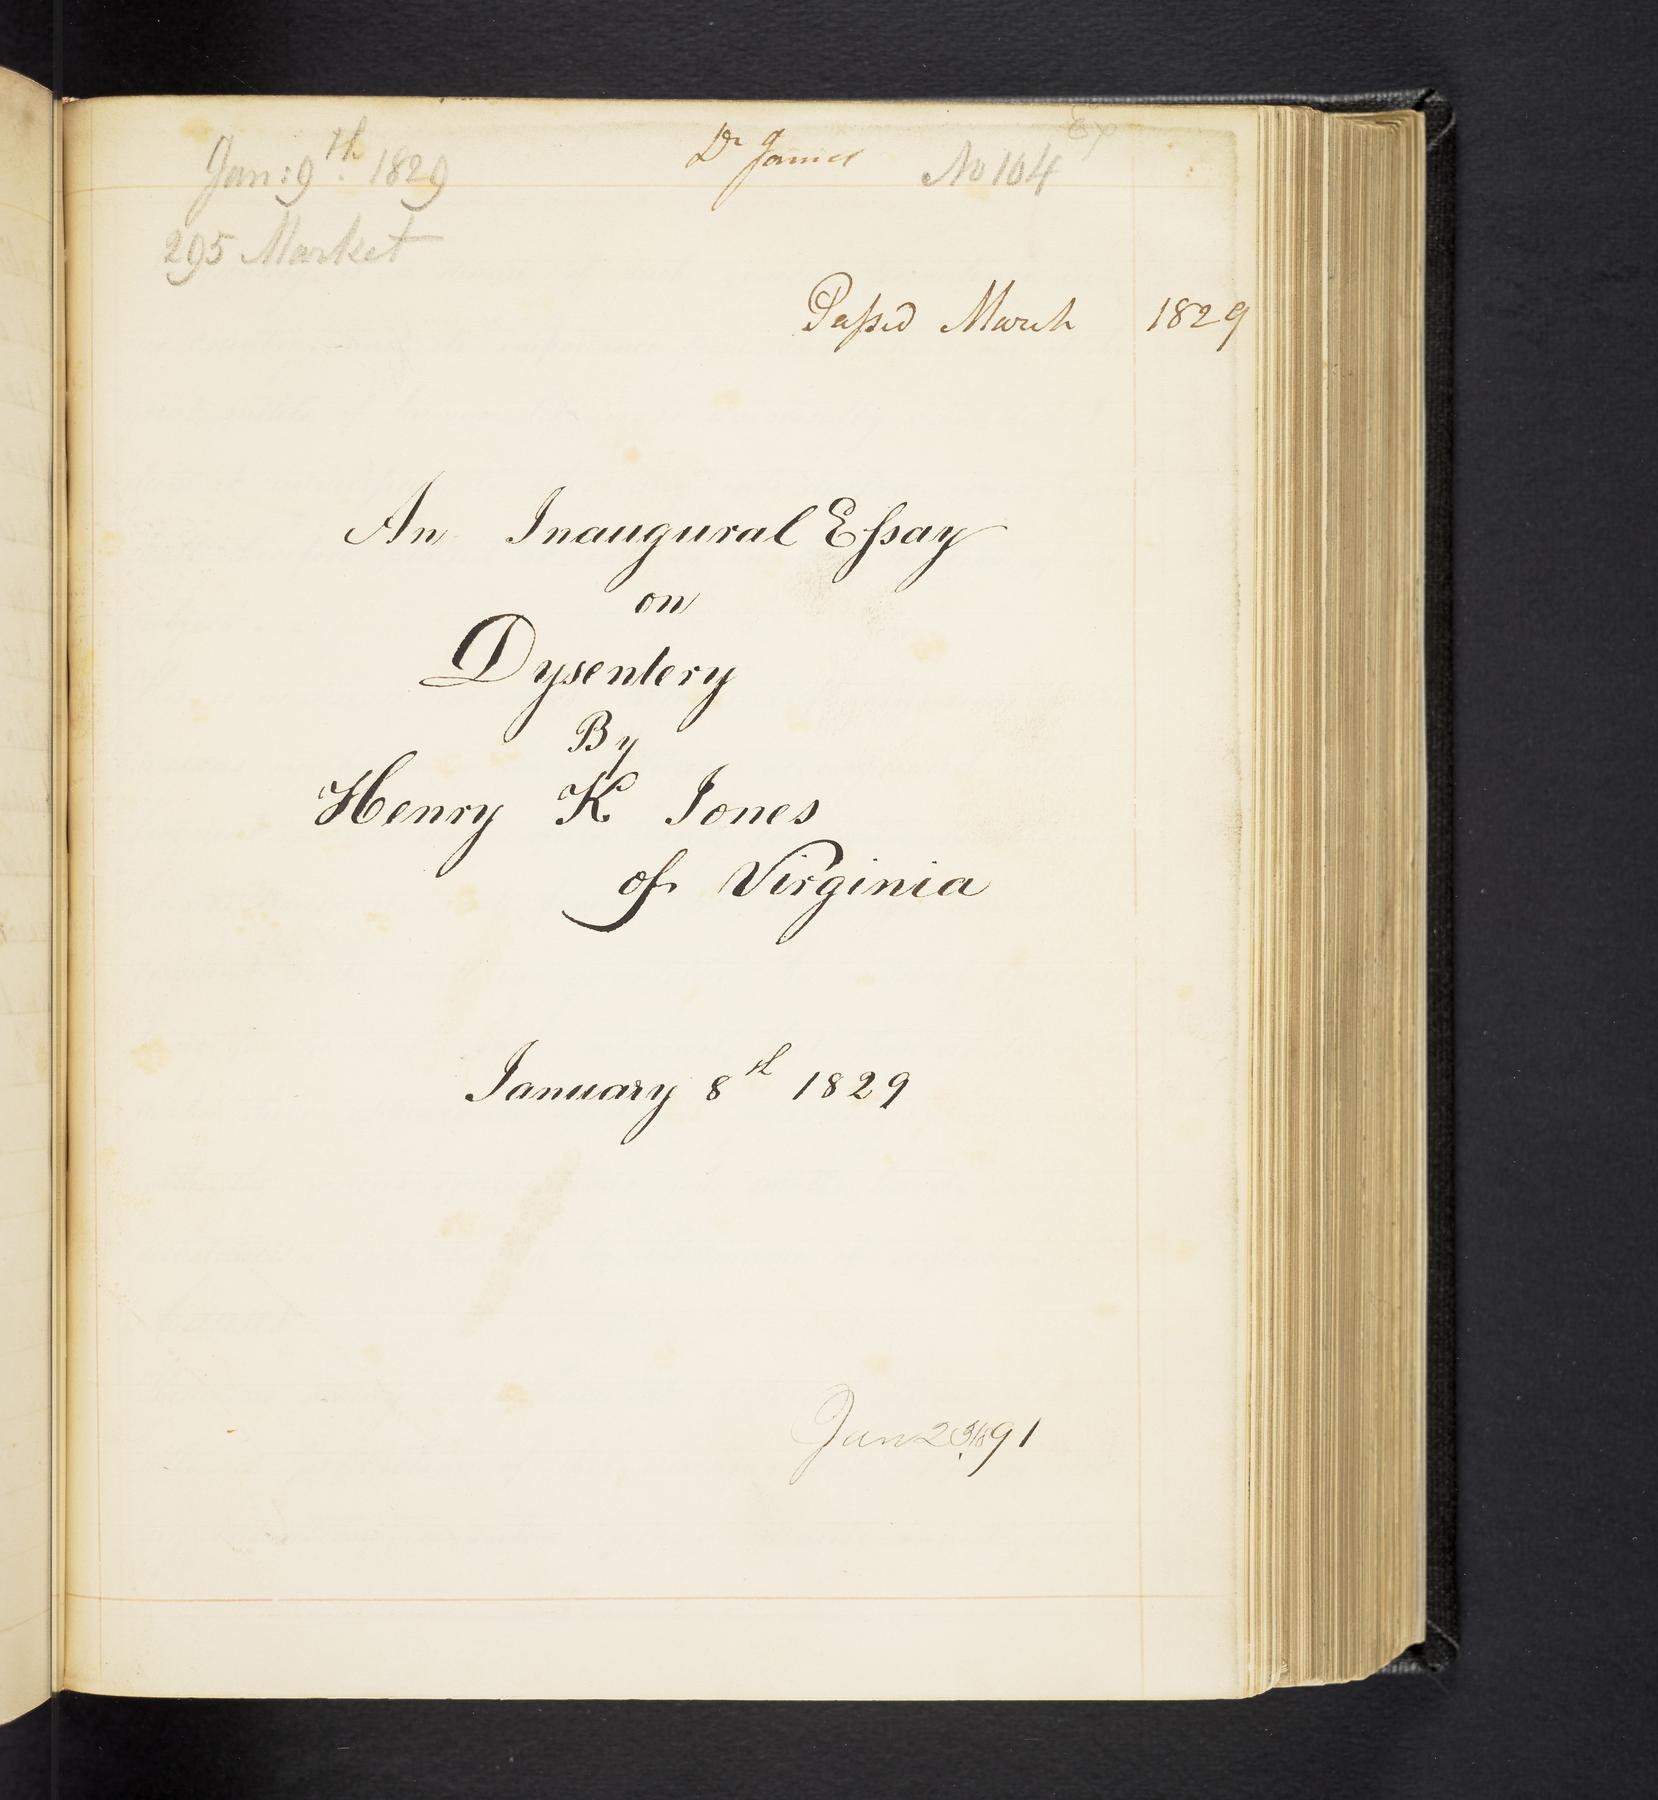 Jan: 9th. 1829
Dr James
No 104
Ex
295 Market
Passed March 1829
An Inaugural Essay
on
Dysentery
By
Henry K Jones
of Virginia
January 8th 1829
Jan